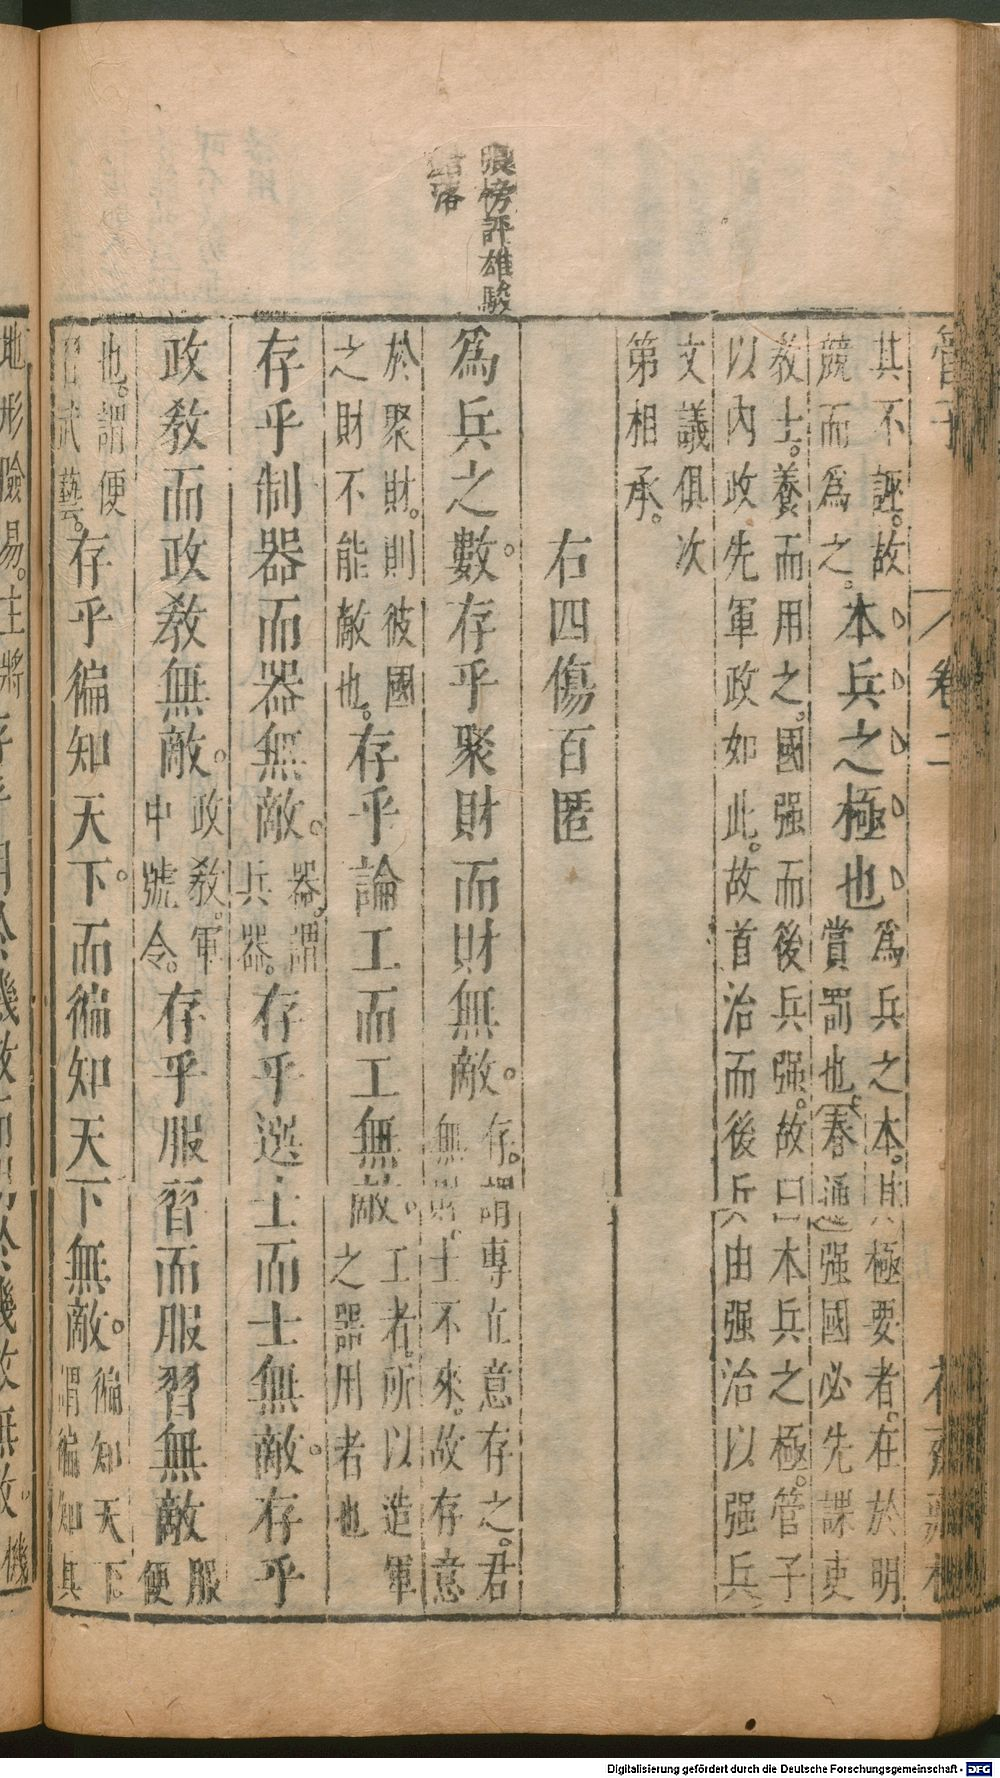 管子 卷二 花齋藏板
其不誣。故
競而爲之。本兵之極也
爲兵之本。其極要者。在於明
賞罰也。春通強國必先課吏
教士。養而用之。國强而後兵强。故曰本兵之極。管子
以內政先軍政如此。故首治而後兵由强治以强兵
文議俱次
第相承。
右四傷百匿
張榜評雄駿
爲兵之數。存乎聚財而財無敵。
存。謂專在意存之。君
無財士不來。故存意
於聚財。則彼國
之財不能敵也。
存乎論工而工無敵。
工者。所以造軍
之器用者也
存乎制器而器無敵。
器。謂
兵器。
存乎選士而士無敵。存乎
政教而政教無敵。
政教。軍
中號令。
存乎服習而服習無敵
服
便
也。謂便
習武藝。
存乎徧知天下。而徧知天下無敵。
徧知天下
謂徧知其
地形險易。主將
Digitalisierung gefördert durch die Deutsche Forschungsgemeinschaft - DFG